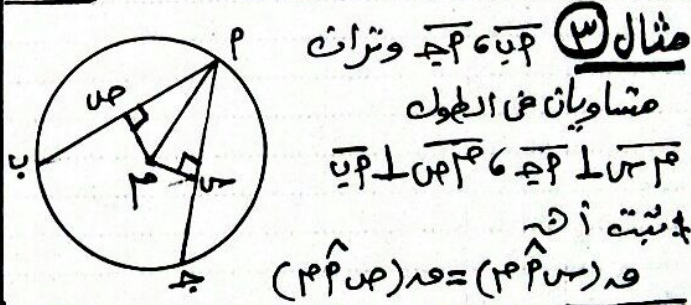 مثال ③ أب، أج وتران
متساويان فى الطول
م س ⊥ أج، م ص ⊥ أب
اثبت أن
ق(س أ م) = ق(ص أ م)
أ
ص
ب
م
س
ج